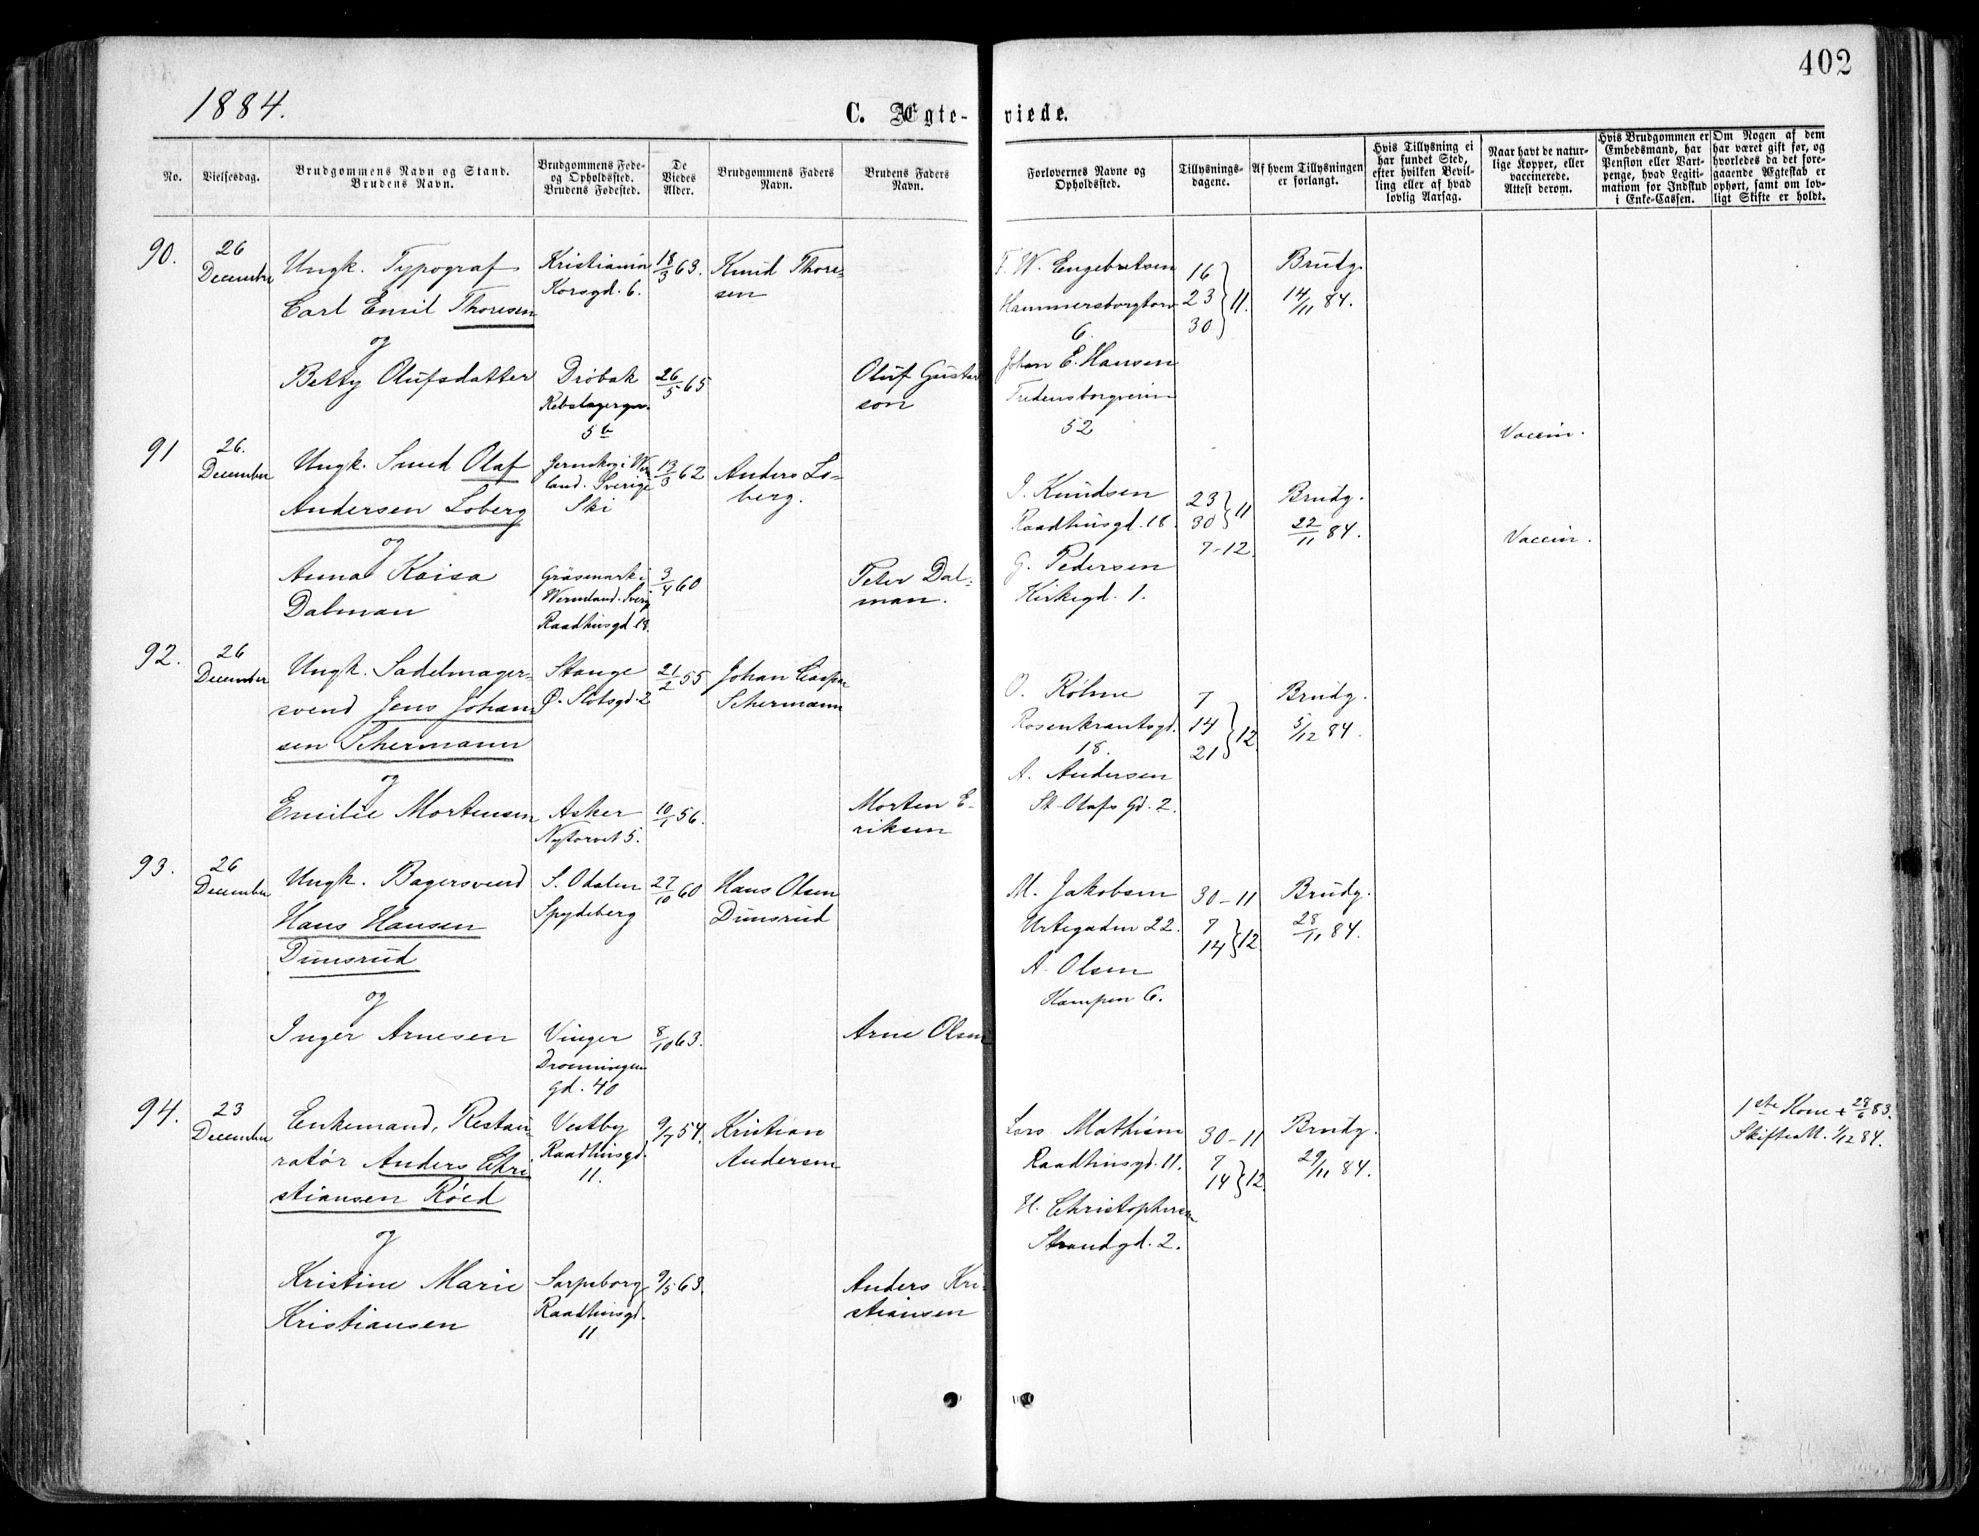 402
1884.
C. Ægte-viede.
No.
Vielsesdag.
Brudgommens Navn og Stand.
Brudens Navn.
Brudgommens Føde-
og Opholdssted.
Brudens Fødested.
De
Viedes
Alder.
Brudgommens Faders
Navn.
Brudens Faders
Navn.
Forlovernes Navne og
Opholdssted.
Tillysnings-
dagene.
Af hvem Tillysningen
er forlangt.
Hvis Tillysning ei
har fundet Sted,
efter hvilken Bevil-
ling eller af hvad
lovlig Aarsag.
Naar havt de natur-
lige Kopper, eller
vaccinerede.
Attest derom.
Hvis Brudgommen er
Embedsmand, har
Pension eller Vart-
penge, hvad Legiti-
mation for Indskud
i Enke-Cassen.
Om Nogen af dem
har været gift før, og
hvorledes da det fore-
gaaende Ægteskab er
ophørt, samt om lov-
ligt Skifte er holdt.
90.
26
December
Ungk. Typograf
Carl Emil Thoresen
og
Betty Olufsdatter
Kristiania
Korsgd. 6.
Drøbak
Rebslagergn.
5 b
18/3 63.
26/5 65
Knud Thore-
sen
Oluf Gusta
son
F. W. Engebretsen
Hammersborgtorv
6.
Johan E. Hansen
Fredensborgveien
52
16
23
30
11.
Brudg.
14/11 84.
Vaccin.
91
26.
December
Ungk. Smed Olaf
Andersen Loberg
og
Anna Kaisa
Dalman
Jernskog i Werm
land. Sverige
Ski
Gräsmark i
Wermland. Sverig
Raadhusgd. 18.
13/3 62
3/4 60
Anders Lo-
berg.
Peter Dal-
man.
J. Knudsen
Raadhusgd. 18.
G. Pedersen
Kirkegd. 1.
23
30
11
7-12.
Brudg.
22/11 84.
Vaccin.
92.
26
December
Ungk. Sadelmager-
svend Jens Johan
sen Schermann
og
Emilie Mortensen
Stange
Ø. Slotsgd. 2
Asker
Nytorvet 5.
21/2 55
10/1 56.
Johan Caspar
Schermann
Morten E-
riksen
O. Røhne
Rosenkrantsgd.
18.
A. Andersen
St. Olafs Gd. 2.
7
14
21
12
Brudg.
5/12 84.
93.
26
December
Ungk. Bagersvend
Hans Hansen
Dunsrud
og
Inger Arnesen
S. Odalen
Spydeberg
Vinger
Dronningen
gd. 40
27/10 60
8/10 63.
Hans Olsen
Dunsrud
Arne Olsen
M. Jakobsen
Urtegaden 22.
A. Olsen
Kampen 6.
30-11
7
14
12
Brudg.
28/11 84.
94.
23
December
Enkemand, Restau-
ratør Anders Chri
stiansen Røed
og
Kristine Marie
Kristiansen
Vestby
Raadhusgd.
11.
Sarpsborg
Raadhusgd.
11
9/7 54.
9/5 63.
Kristian
Andersen
Anders Kri-
stiansen
Lars Mathisen
Raadhusgd. 11.
H. Christophersen
Strandgd. 2.
30-11
7
14
12.
Brudg.
29/11 84.
1ste Kone + 28/6 83.
Skifteatt. 1/12 84.